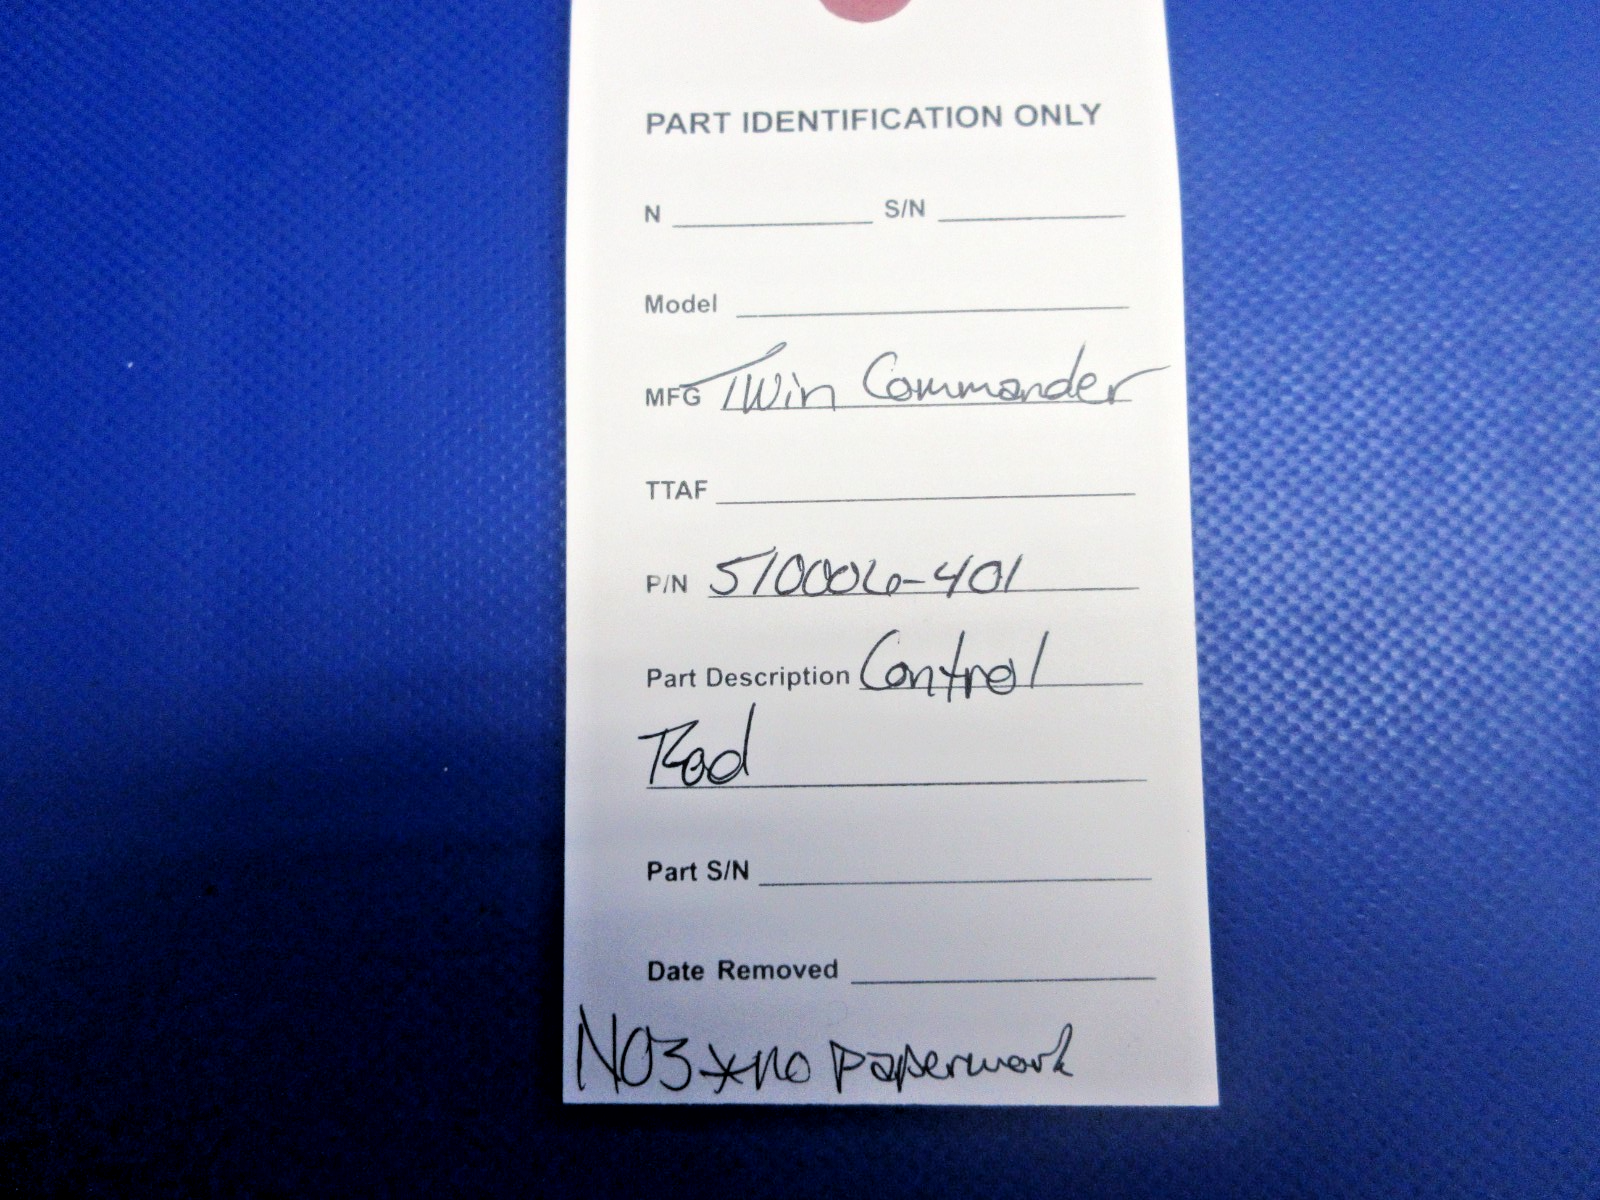 PART IDENTIFICATION ONLY
N S/N
Model
MFG Twin Commander
TTAF
P/N 510006-401
Part Description Control
Rod
Part S/N
Date Removed
N03*no paperwork